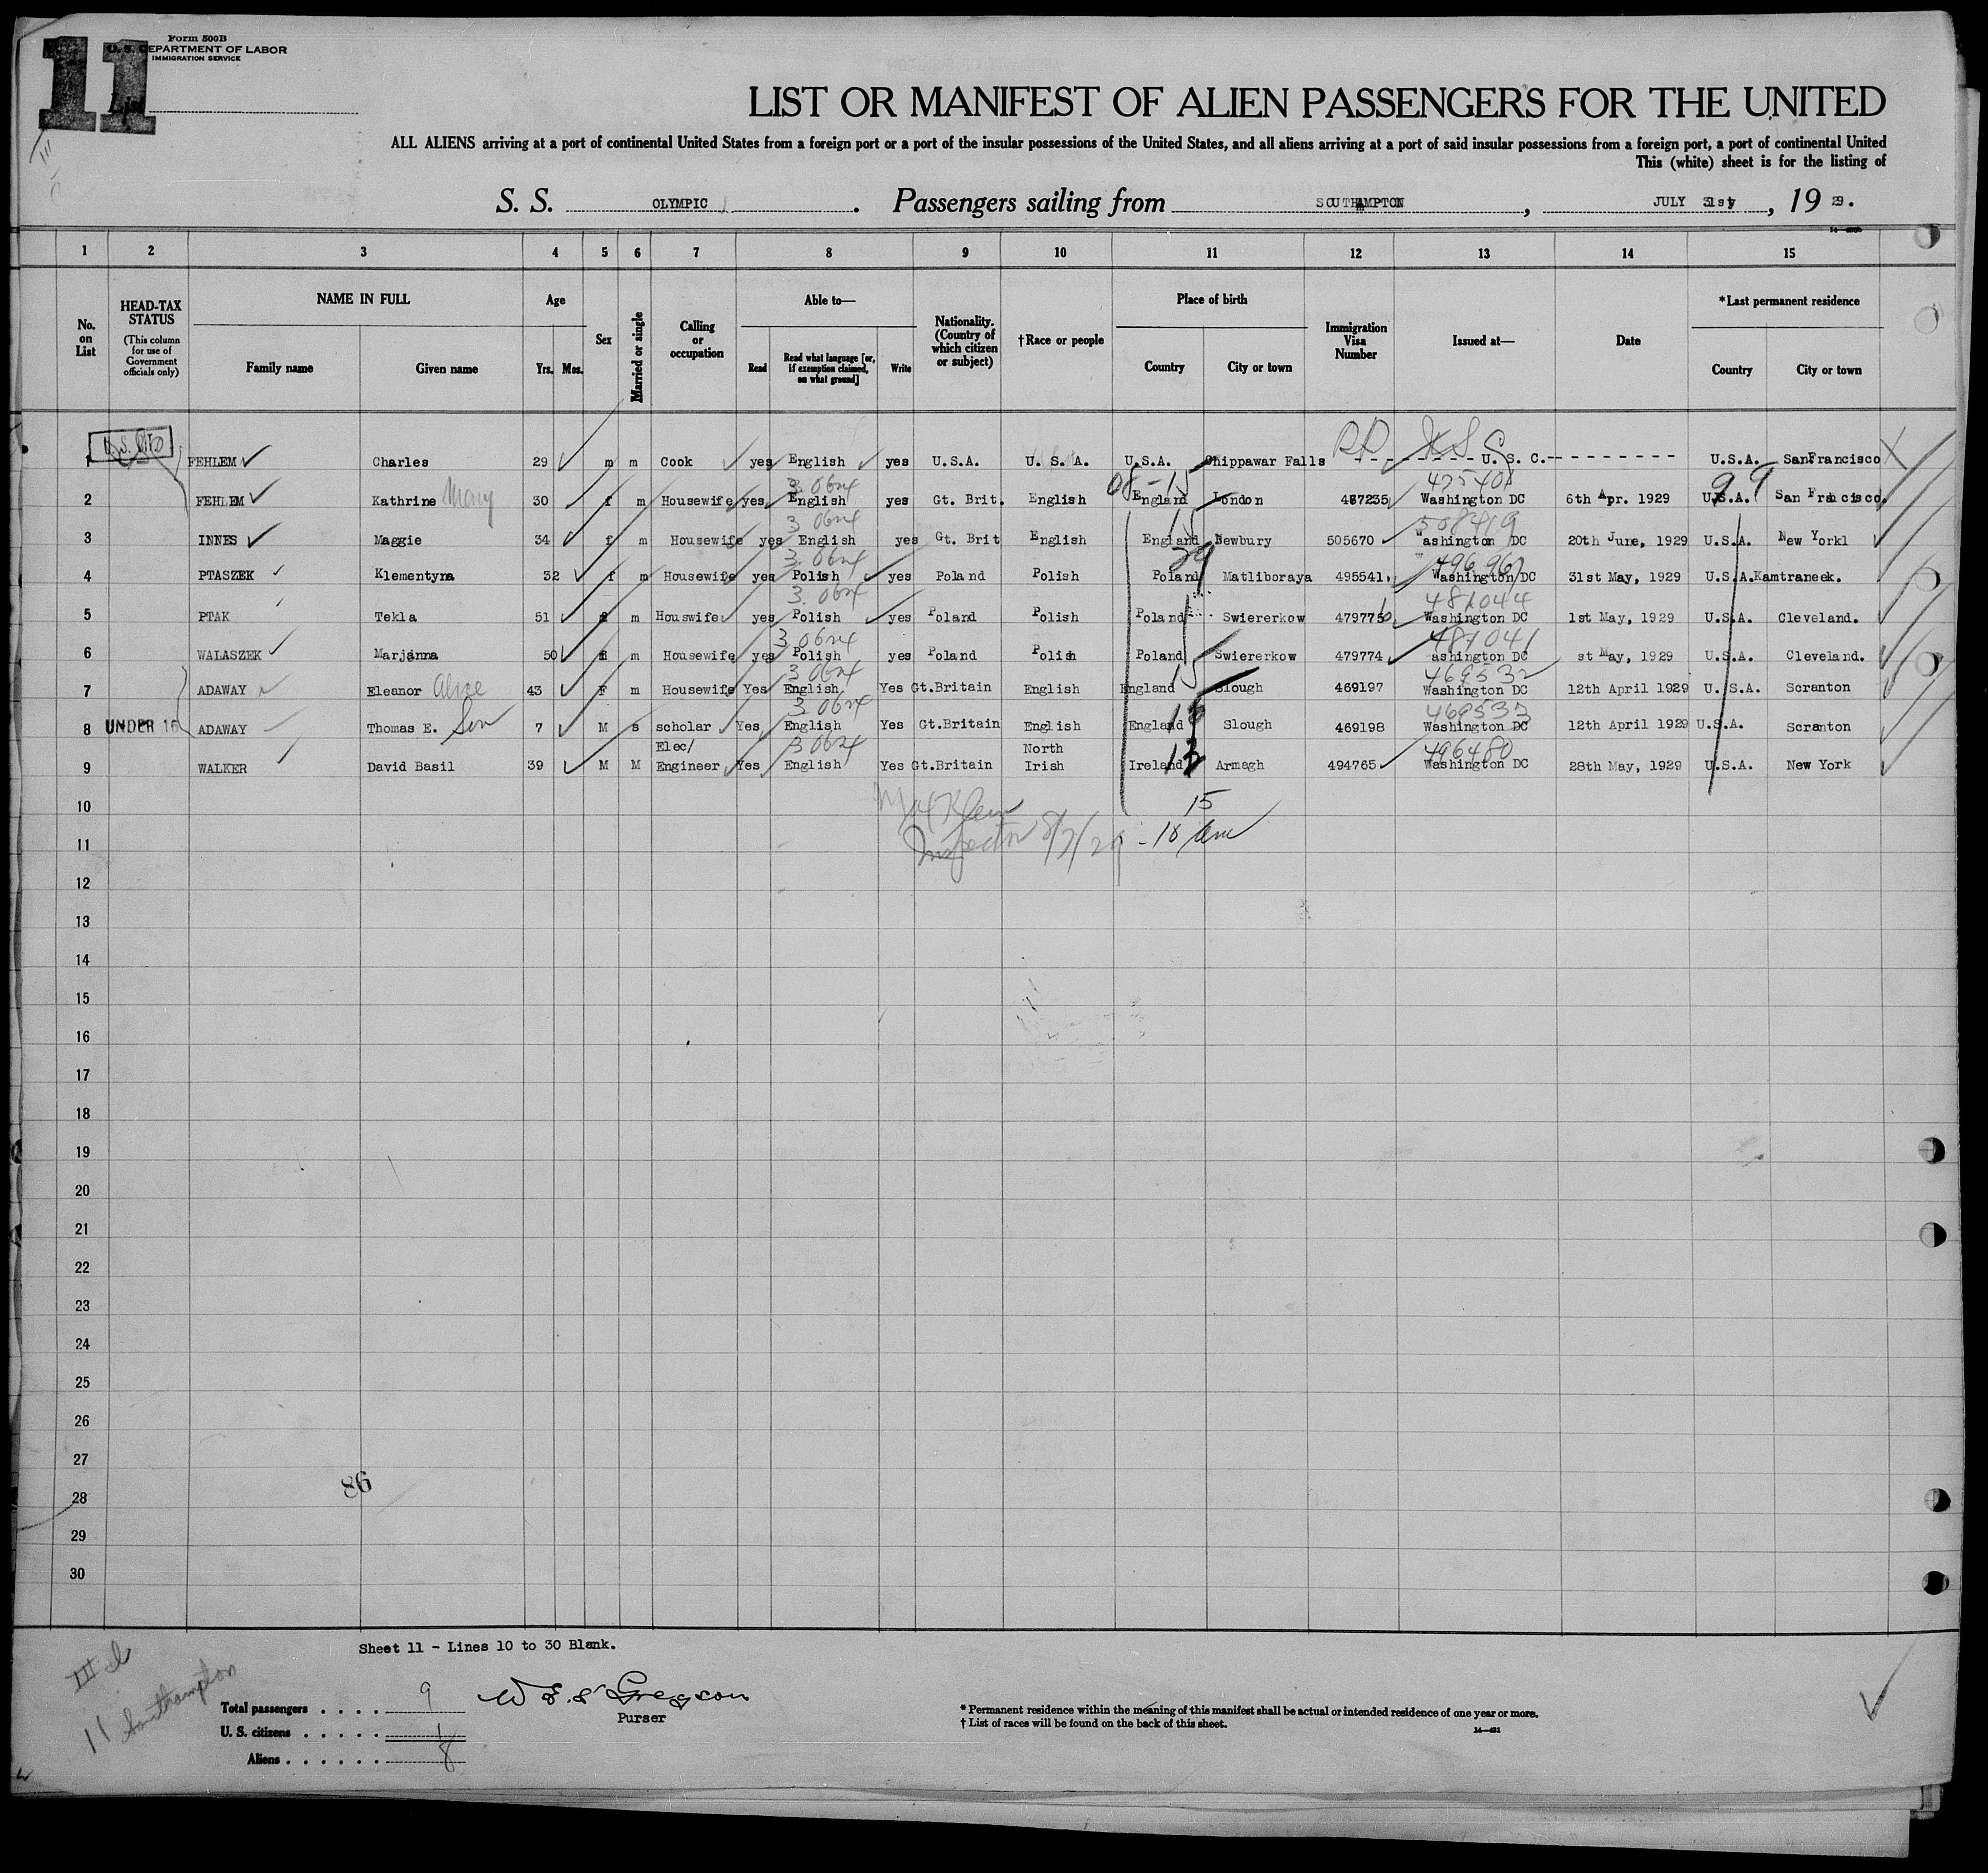 11
Form 500B
U. S. DEPARTMENT OF LABOR
IMMIGRATION SERVICE
List
LIST OR MANIFEST OF ALIEN PASSENGERS FOR THE UNITED
ALL ALIENS arriving at a port of continental United States from a foreign port or a port of the insular possessions of the United States, and all aliens arriving at a port of said insular possessions from a foreign port, a port of continental United
This (white) sheet is for the listing of
S. S. OLYMPIC . Passengers sailing from SOUTHAMPTON , JULY 31st , 19 29.
1 2 3 4 5 6 7 8 9 10 11 12 13 14 15
No. on List
HEAD-TAX STATUS
(This column for use of Government officials only)
NAME IN FULL
Family name Given name
Age
Yrs. Mos.
Sex
Married or single
Calling or occupation
Able to—
Read
Read what language [or, if exemption claimed, on what ground]
Write
Nationality. (Country of which citizen or subject)
†Race or people
Place of birth
Country City or town
Immigration Visa Number
Issued at—
Date
*Last permanent residence
Country City or town
1 FEHLEM Charles 29 m m Cook yes English yes U.S.A. U. S. A. U.S.A. Chippawar Falls - - - - - - - U. S. C.- - - - - - - - - - U.S.A. SanFrancisco
3.0624 08-15 475408 99
2 FEHLEM Kathrine Mary 30 f m Housewife yes English yes Gt. Brit. English England London 467235 Washington DC 6th Apr. 1929 U.S.A. San Francisco.
3 0624 15 508419
3 INNES Maggie 34 f m Housewife yes English yes Gt. Brit English England Newbury 505670 Washington DC 20th June, 1929 U.S.A. New Yorkl
3.0624 29 496967
4 PTASZEK Klementyna 32 f m Housewife yes Polish yes Poland Polish Poland Matliboraya 495541 Washington DC 31st May, 1929 U.S.A.Kamtraneek.
3.0624 481044
5 PTAK Tekla 51 f m Houswife yes Polish yes Poland Polish Poland Swiererkow 479775 Washington DC 1st May, 1929 U.S.A. Cleveland.
3 0624 481041
6 WALASZEK Marjanna 50 f m Housewife yes Polish yes Poland Polish Poland Swiererkow 479774 ashington DC st May, 1929 U.S.A. Cleveland.
3 0624 15 469532
7 ADAWAY Eleanor Alice 43 F m Housewife Yes English Yes Gt.Britain English England Slough 469197 Washington DC 12th April 1929 U.S.A. Scranton
3.0624 15 469533
8 UNDER 16 ADAWAY Thomas E. Son 7 M s scholar Yes English Yes Gt.Britain English England Slough 469198 Washington DC 12th April 1929 U.S.A. Scranton
Elec/ 3 0624 North 496480
9 WALKER David Basil 39 M M Engineer Yes English Yes Gt.Britain Irish Ireland Armagh 494765 Washington DC 28th May, 1929 U.S.A. New York
10 15
11 Inspector 8/7/29
12
13
14
15
16
17
18
19
20
21
22
23
24
25
26
27
86
28
29
30
Sheet 11 - Lines 10 to 30 Blank.
11 Southampton
Total passengers . . . . 9
Purser
U. S. citizens . . . . . 1
Aliens . . . . . . 8
* Permanent residence within the meaning of this manifest shall be actual or intended residence of one year or more.
† List of races will be found on the back of this sheet.